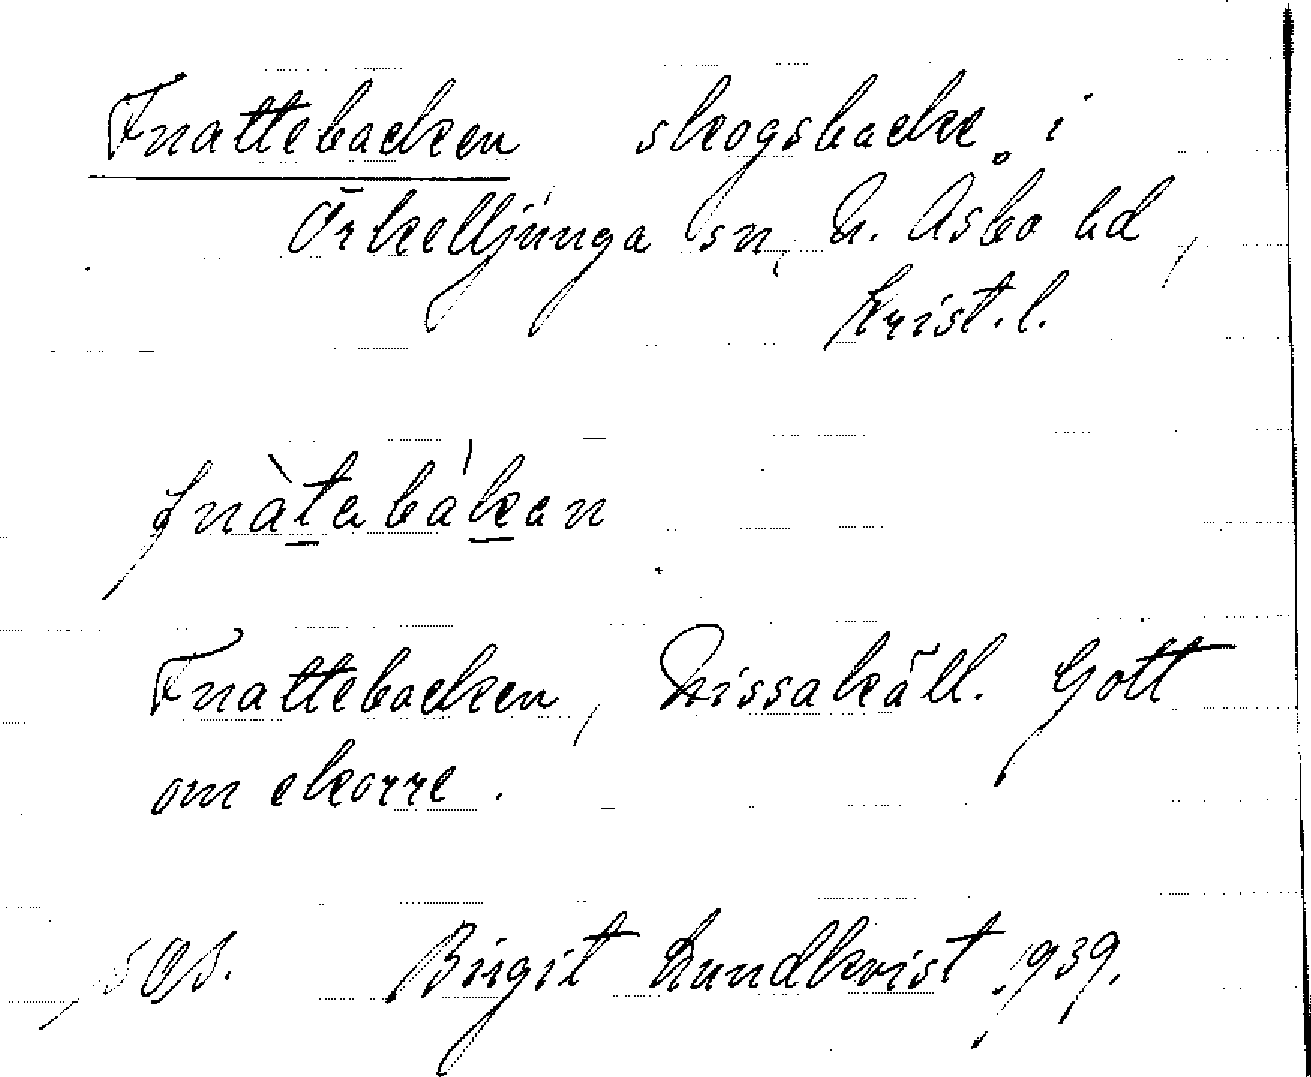 Fnattebacken skogsbacke i
Örkelljunga sn, N. Åsbo hd,
Krist. l.
fnàtabákan
Fnattebacken, Nissakäll. Gott
om ekorre.
Birgit Lundkvist 1939.